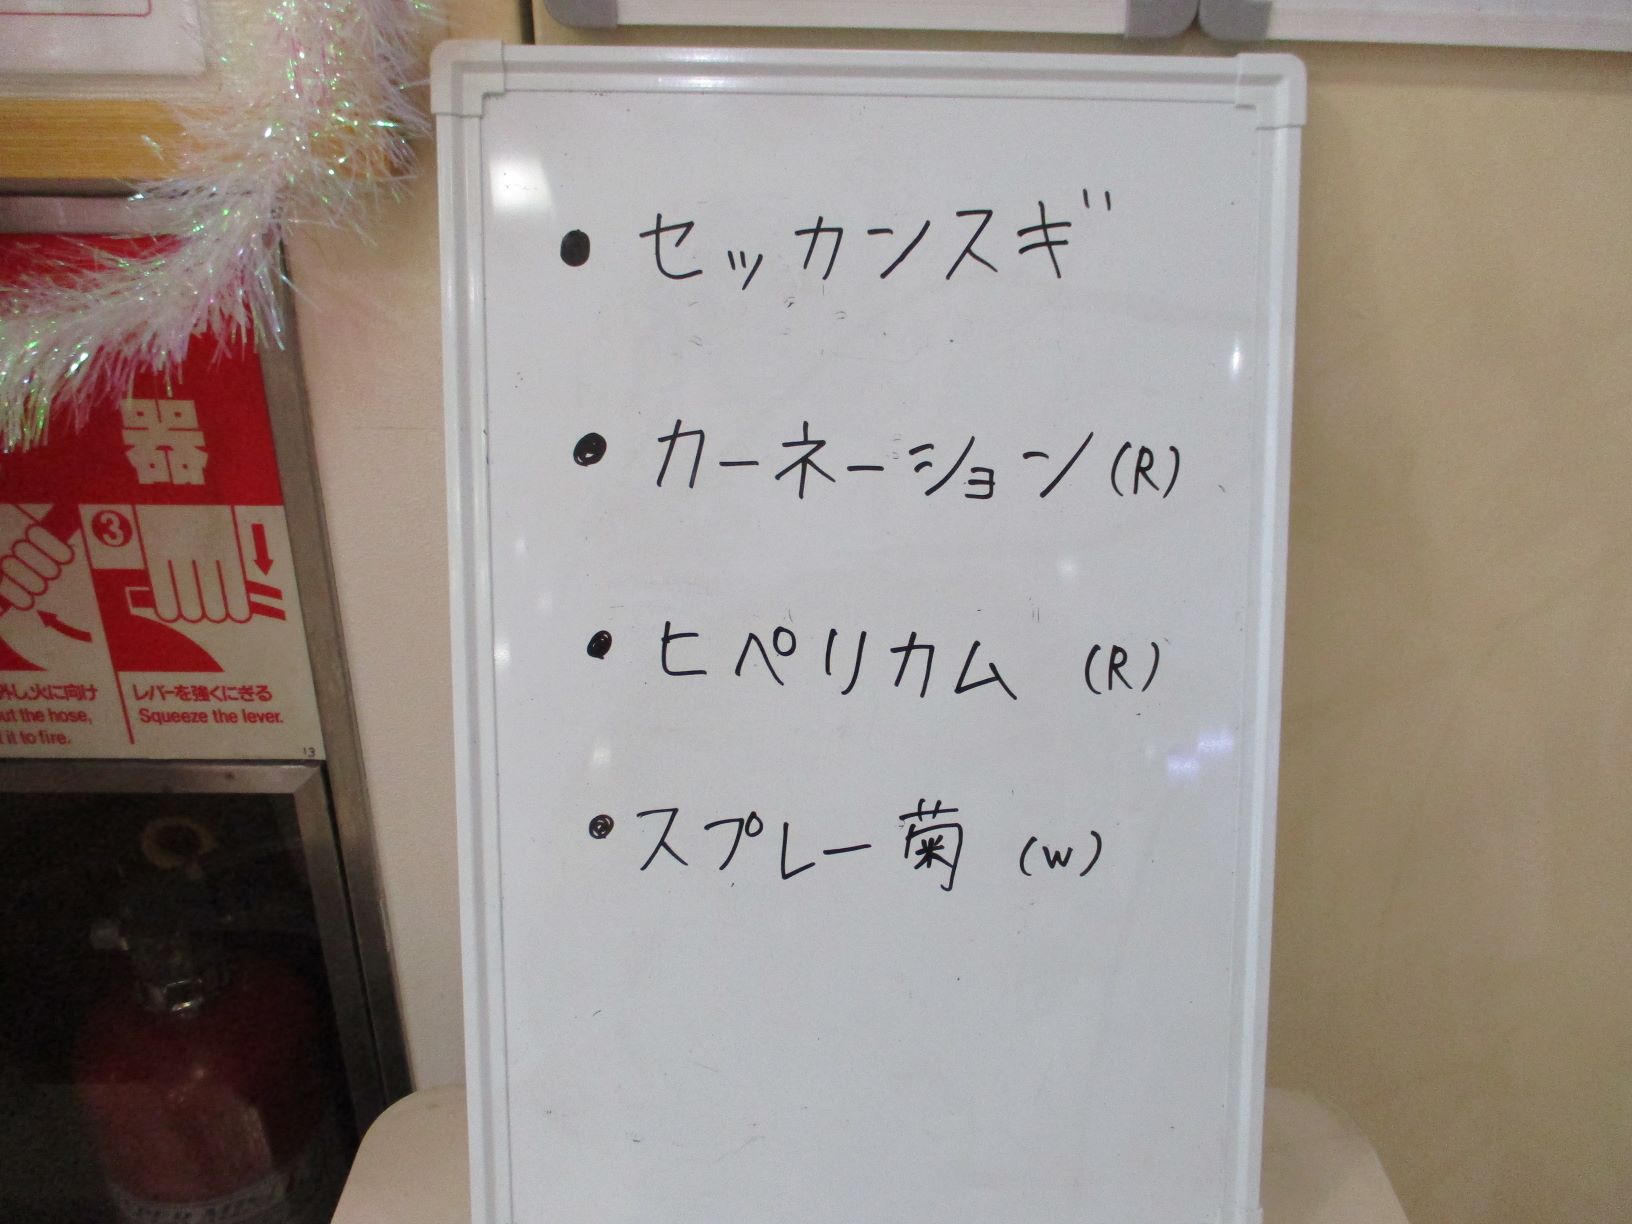 ・セッカンスギ
・カーネーション(R)
・ヒペリカム (R)
・スプレー菊 (W)
器
3
外し火に向け
レバーを強くにぎる
Squeeze the lever.
the hose,
it to fire.
13